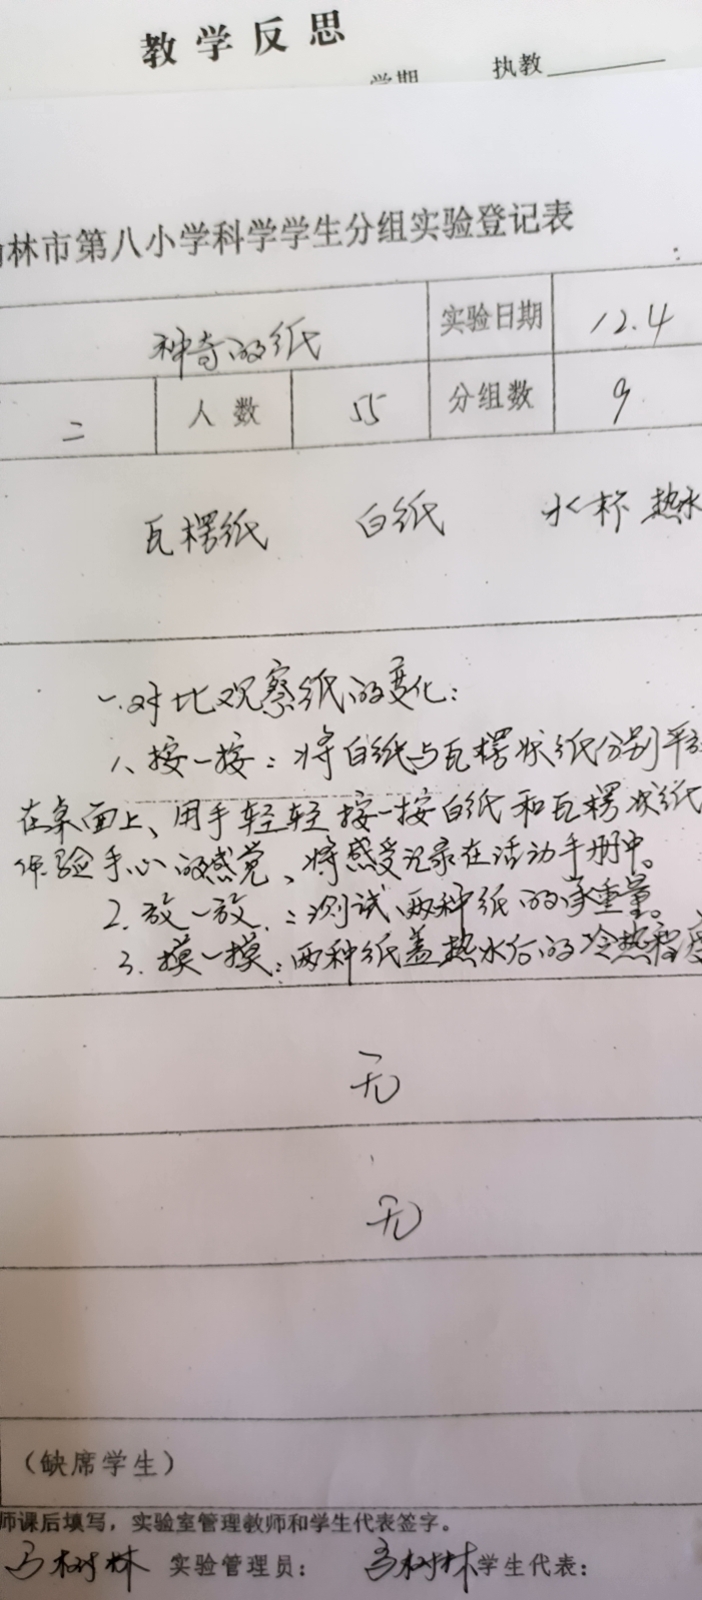 教学反思
学期 执教
林市第八小学科学学生分组实验登记表
神奇的纸 实验日期 12.4
二 人数 55 分组数 9
瓦楞纸 白纸 水杯 热水
一.对比观察纸的变化:
1、按一按:将白纸与瓦楞状纸分别平
在桌面上、用手轻轻按一按白纸和瓦楞状纸
体验手心的感觉、将感受记录在活动手册中。
2.放一放:测试两种纸的承重量。
3.摸一摸:两种纸盖热水后的冷热程度
无
无
(缺席学生)
师课后填写,实验室管理教师和学生代表签字。
树林 实验管理员: 树林 学生代表: